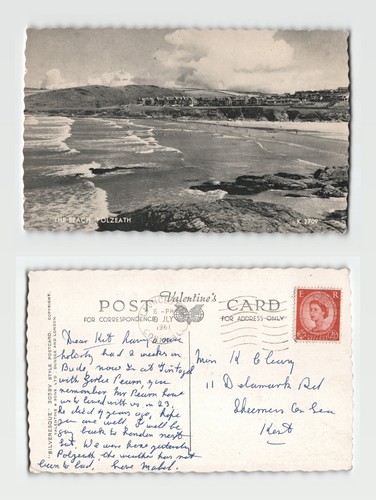 THE BEACH, POLZEATH
K 2709
POST Valentine's CARD
FOR CORRESPONDENCE
FOR ADDRESS ONLY
6 - PM
JLY
1961
E R
"SILVERESQUE" SOSSY STYLE POSTCARD.
COPYRIGHT.
Dear Kit having a nice
holiday had 2 weeks in
Bude, now I at Tintagel
with Gertie Pearn, you
remember Mr Pearn whom
we lived with us in 23,
he died 9 years ago, hope
you are well, I will be
going back to London next
Sat. We were here yesterday
Polzeath, the weather has not
been to bad, love Mabel.
Miss K Cleary
11 Delamark Rd
Sheerness On Sea
Kent